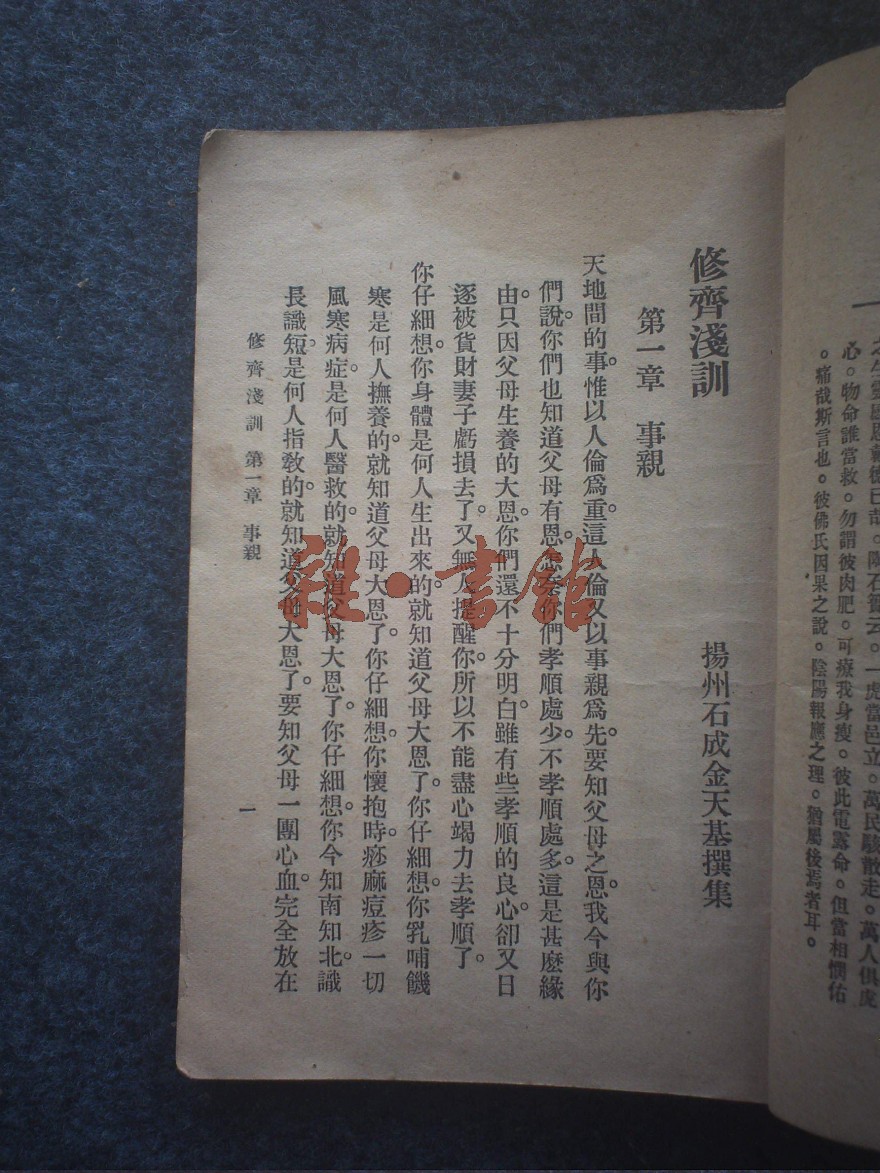 之生靈感恩戴德已哉。陶石簣云。一虎當邑立。萬民駭散走。萬人俱虎
心。物命誰當救。勿謂彼肉肥。可療我身瘦。彼此電露命。但當相憫佑
。痛哉斯言也。彼佛氏因果之說。陰陽報應之理。猶屬後焉者耳。
修齊淺訓
揚州石成金天基撰集
第一章 事親
天地間的事。惟以人倫爲重。這人倫又以事親爲先。要知父母之恩。我今與你
們說。你們也知道父母有恩。怎奈你們孝順處少。不孝順處多。這是甚麼緣
由。只因父母生養的大恩。你們還不十分明白。雖有些孝順的良心。卻又日
逐被貨財妻子虧損去了。又無人提醒你。所以不能盡心竭力去孝順了。
你仔細想。你身體是何人生出來的。就知道父母大恩了。你仔細想。你乳哺饑
寒是何人撫養的。就知道父母大恩了。你仔細想。你懷抱時。痧麻痘疹一切
風寒病症。是何人醫救的。就知道父母大恩了。你仔細想。你今知南知北。識
長識短。是何人指教的。就知道父母大恩了。要知父母一團心血。完全放在
修齊淺訓 第一章 事親
一
雜·書館